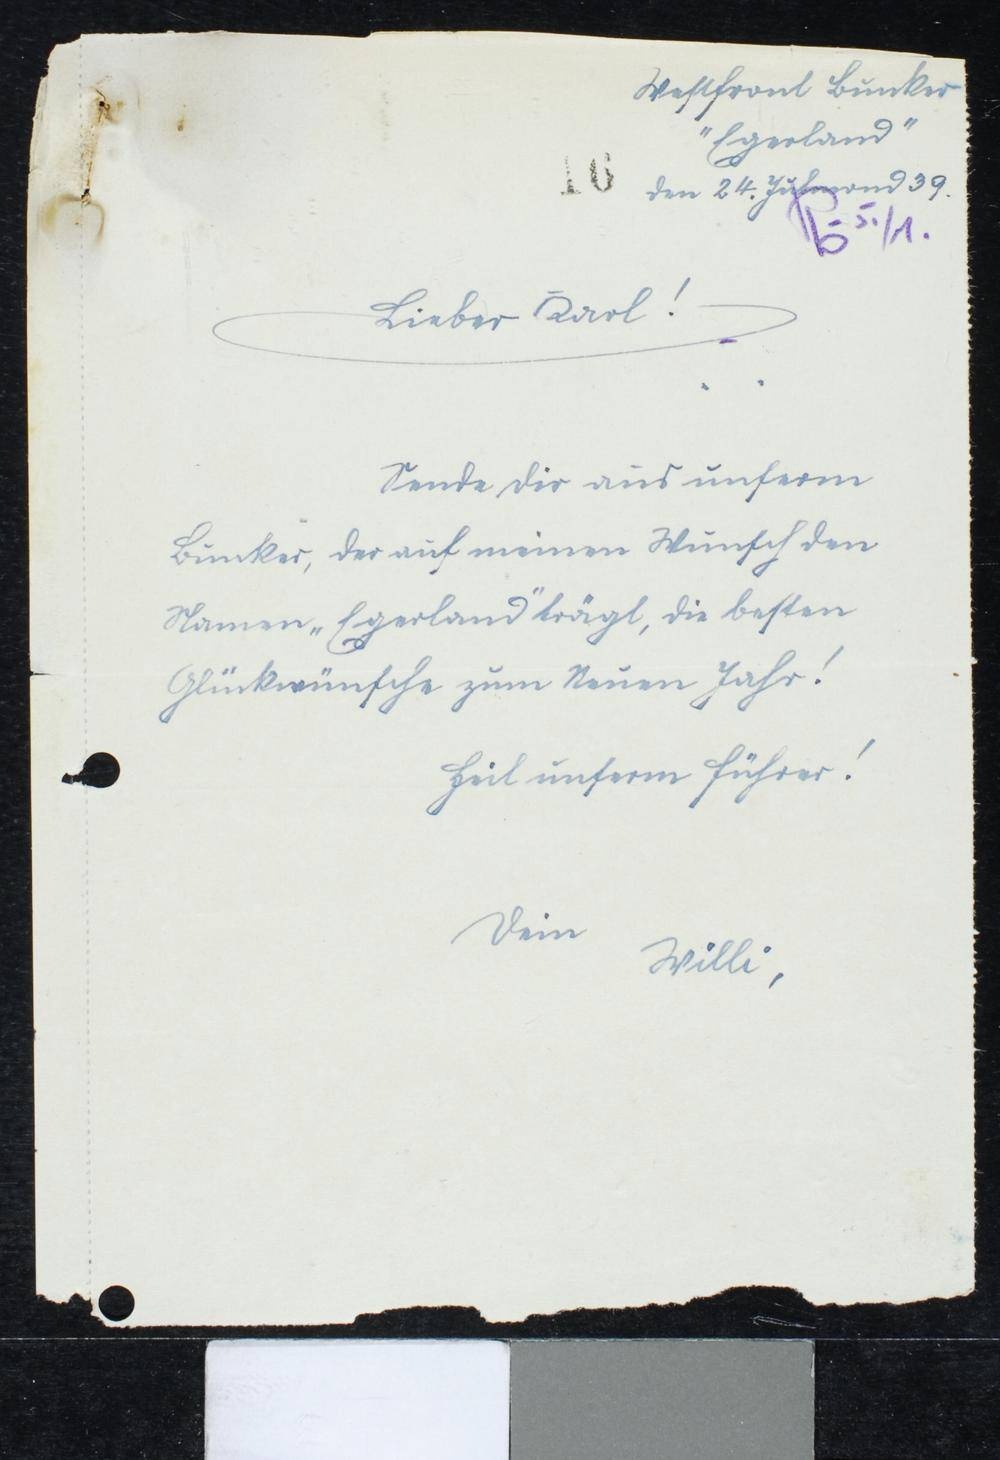 Westfront Bunker
"Egerland"
16
den 24. Julmond 39.
5./1.
Lieber Karl!
Sende dir aus unserm
Bunker, der auf meinen Wunsch den
Namen „Egerland" trägt, die besten
Glückwünsche zum Neuen Jahr!
Heil unserm Führer!
Dein
Willi,